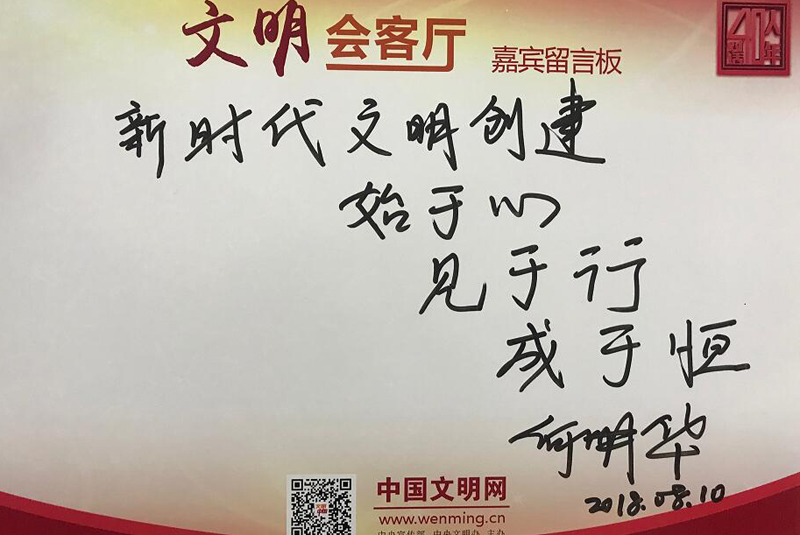 文明会客厅 嘉宾留言板
新时代文明创建
始于心
见于行
成于恒
何明华
2018.08.10
中国文明网
www.wenming.cn
中央宣传部 中央文明办 主办